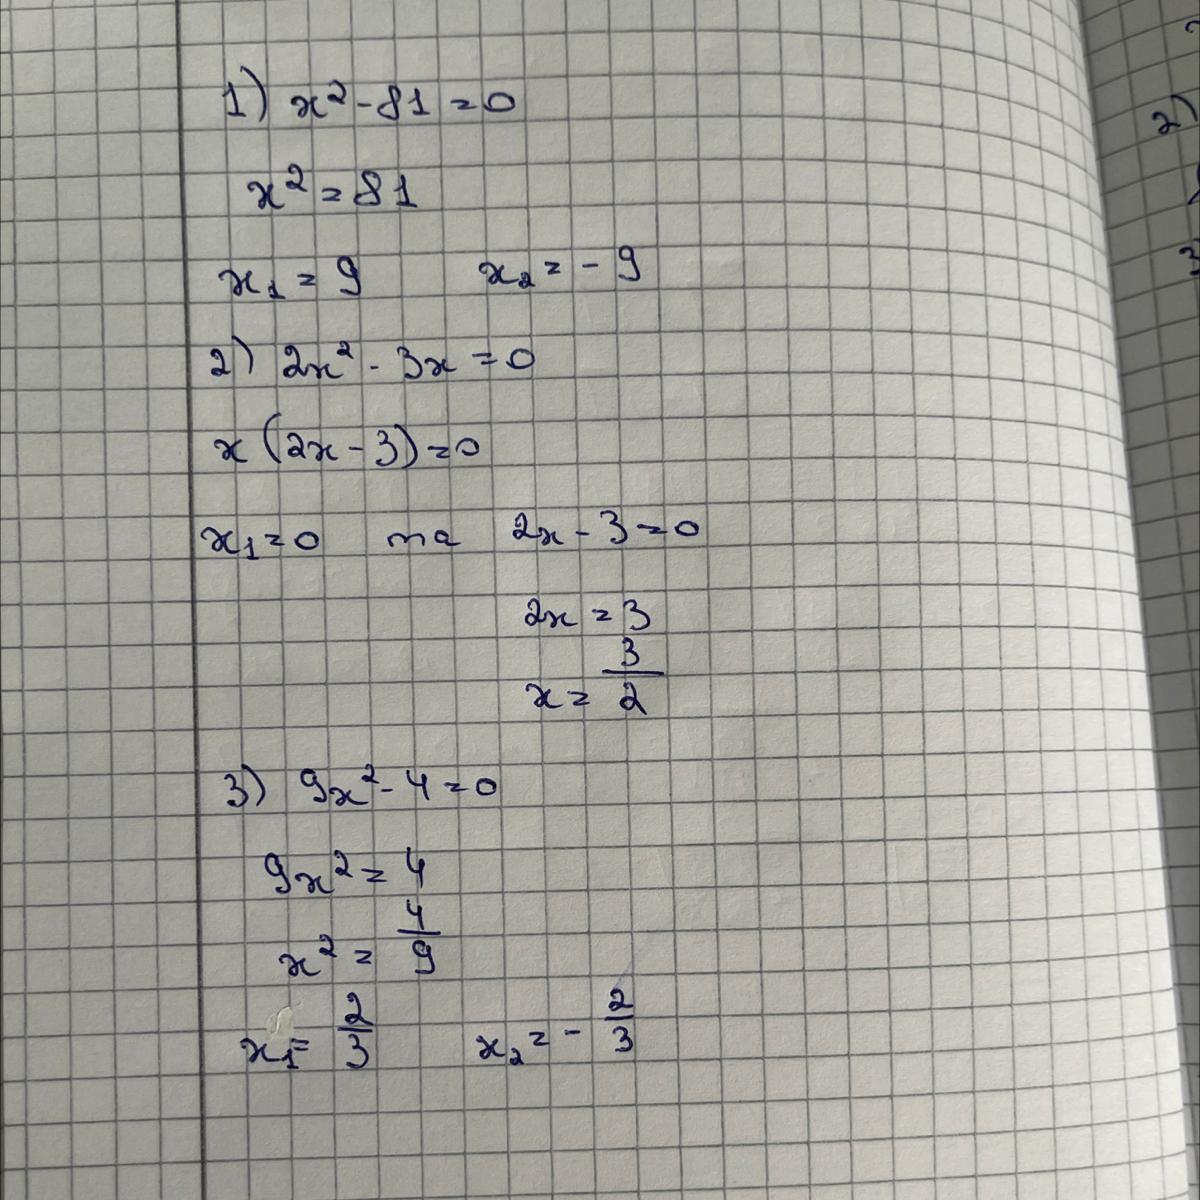 1) x² - 81 = 0
x² = 81
x₁ = 9 x₂ = - 9
2) 2x² - 3x = 0
x (2x - 3) = 0
x₁ = 0 та 2x - 3 = 0
2x = 3
x = 3/2
3) 9x² - 4 = 0
9x² = 4
x² = 4/9
x₁ = 2/3 x₂ = - 2/3
2)
3